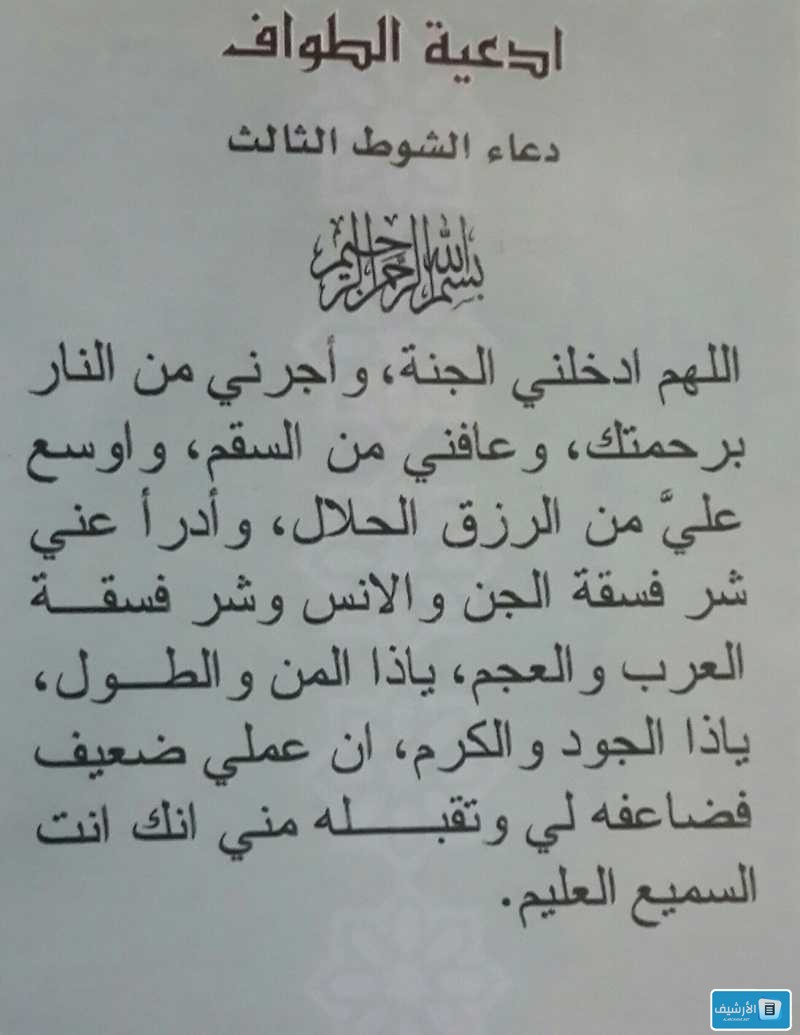 ادعية الطواف
دعاء الشوط الثالث
بسم الله الرحمن الرحيم
اللهم ادخلني الجنة، وأجرني من النار
برحمتك، وعافني من السقم، واوسع
عليَّ من الرزق الحلال، وأدرأ عني
شر فسقة الجن والانس وشر فسقة
العرب والعجم، ياذا المن والطول،
ياذا الجود والكرم، ان عملي ضعيف
فضاعفه لي وتقبله مني انك انت
السميع العليم.
الأرشيف